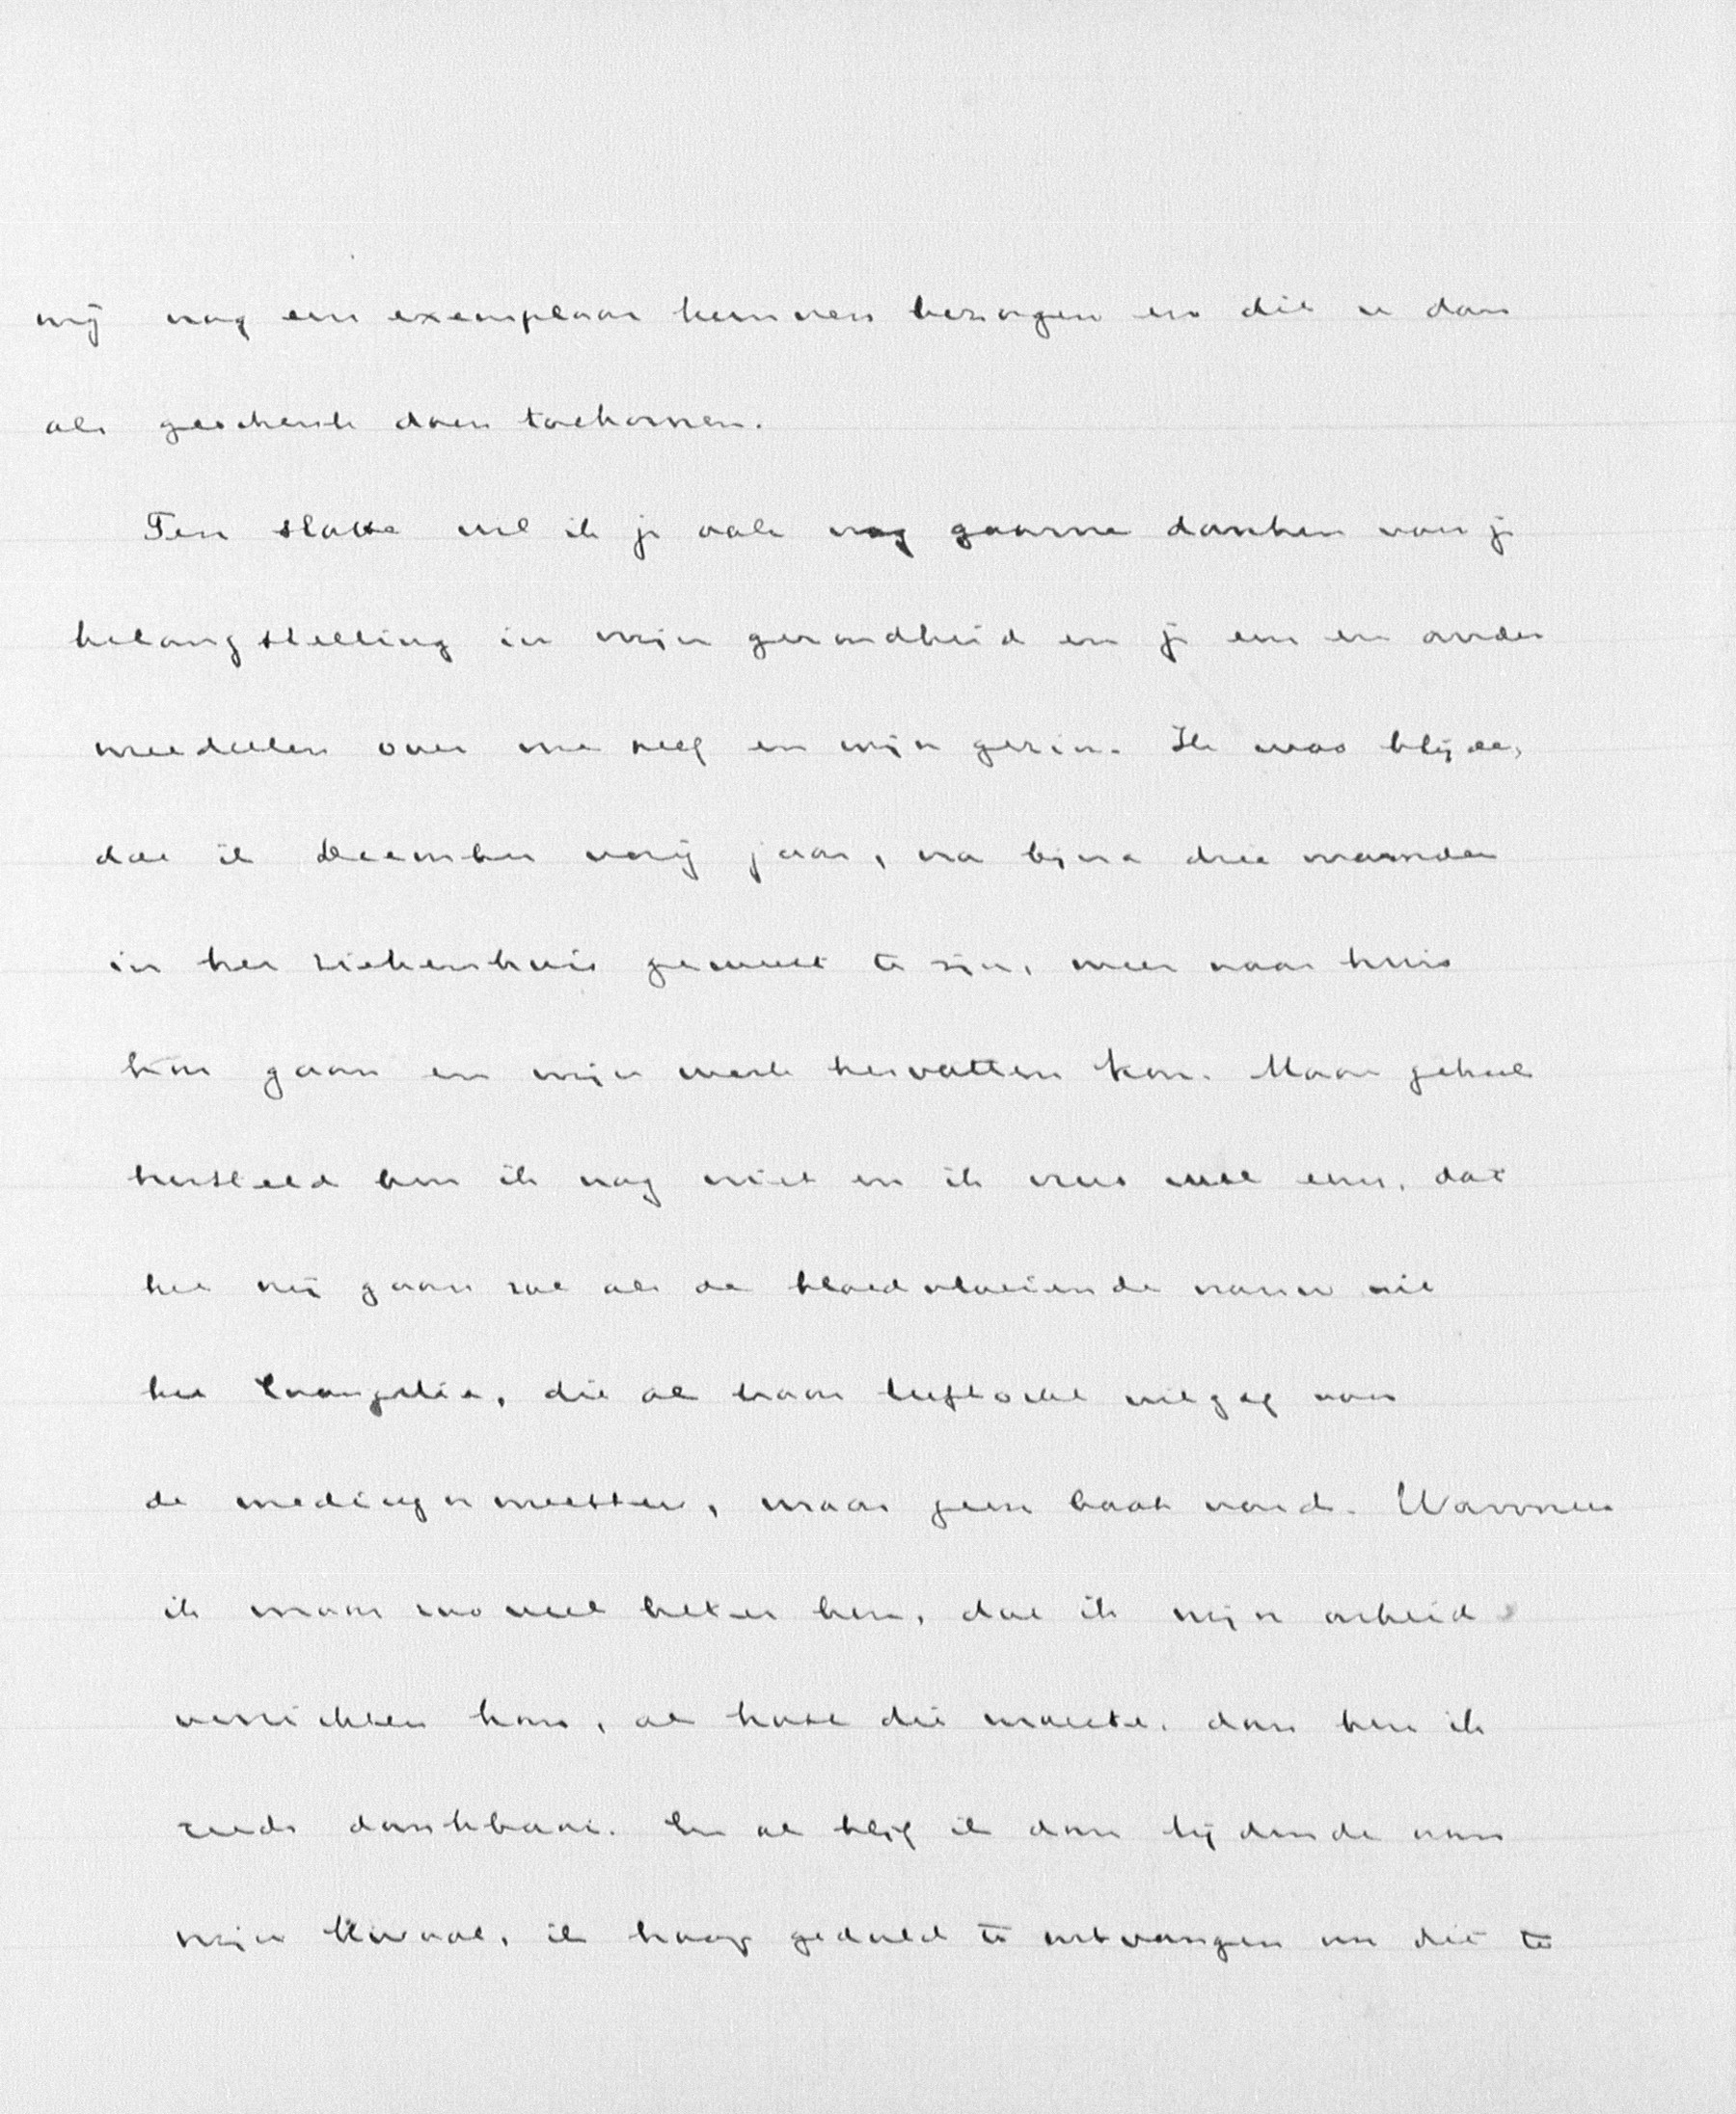 mij nog een exemplaar kunnen bezorgen en dit u dan
als geschenk doen toekomen.
Ten slotte wil ik je ook nog gaarne danken voor je
belangstelling in mijn gezondheid en je een en ander
meedeelen over me zelf en mijn gezin. Ik was blijde,
dat ik December vorig jaar, na bijna drie maanden
in het ziekenhuis geweest te zijn, weer naar huis
kon gaan en mijn werk hervatten kon. Maar geheel
hersteld ben ik nog niet en ik vrees wel eens, dat
het mij gaan zal als de bloedvloeiende vrouw uit
het Evangelie, die al haar leeftocht uitgaf aan
de medicijnmeesters, maar geen baat vond. Wanneer
ik maar zooveel beter ben, dat ik mijn arbeid
verrichten kan, al kost die moeite, dan ben ik
reeds dankbaar. En al blijf ik dan lijdende aan
mijn kwaal, ik hoop geduld te ontvangen om dit te